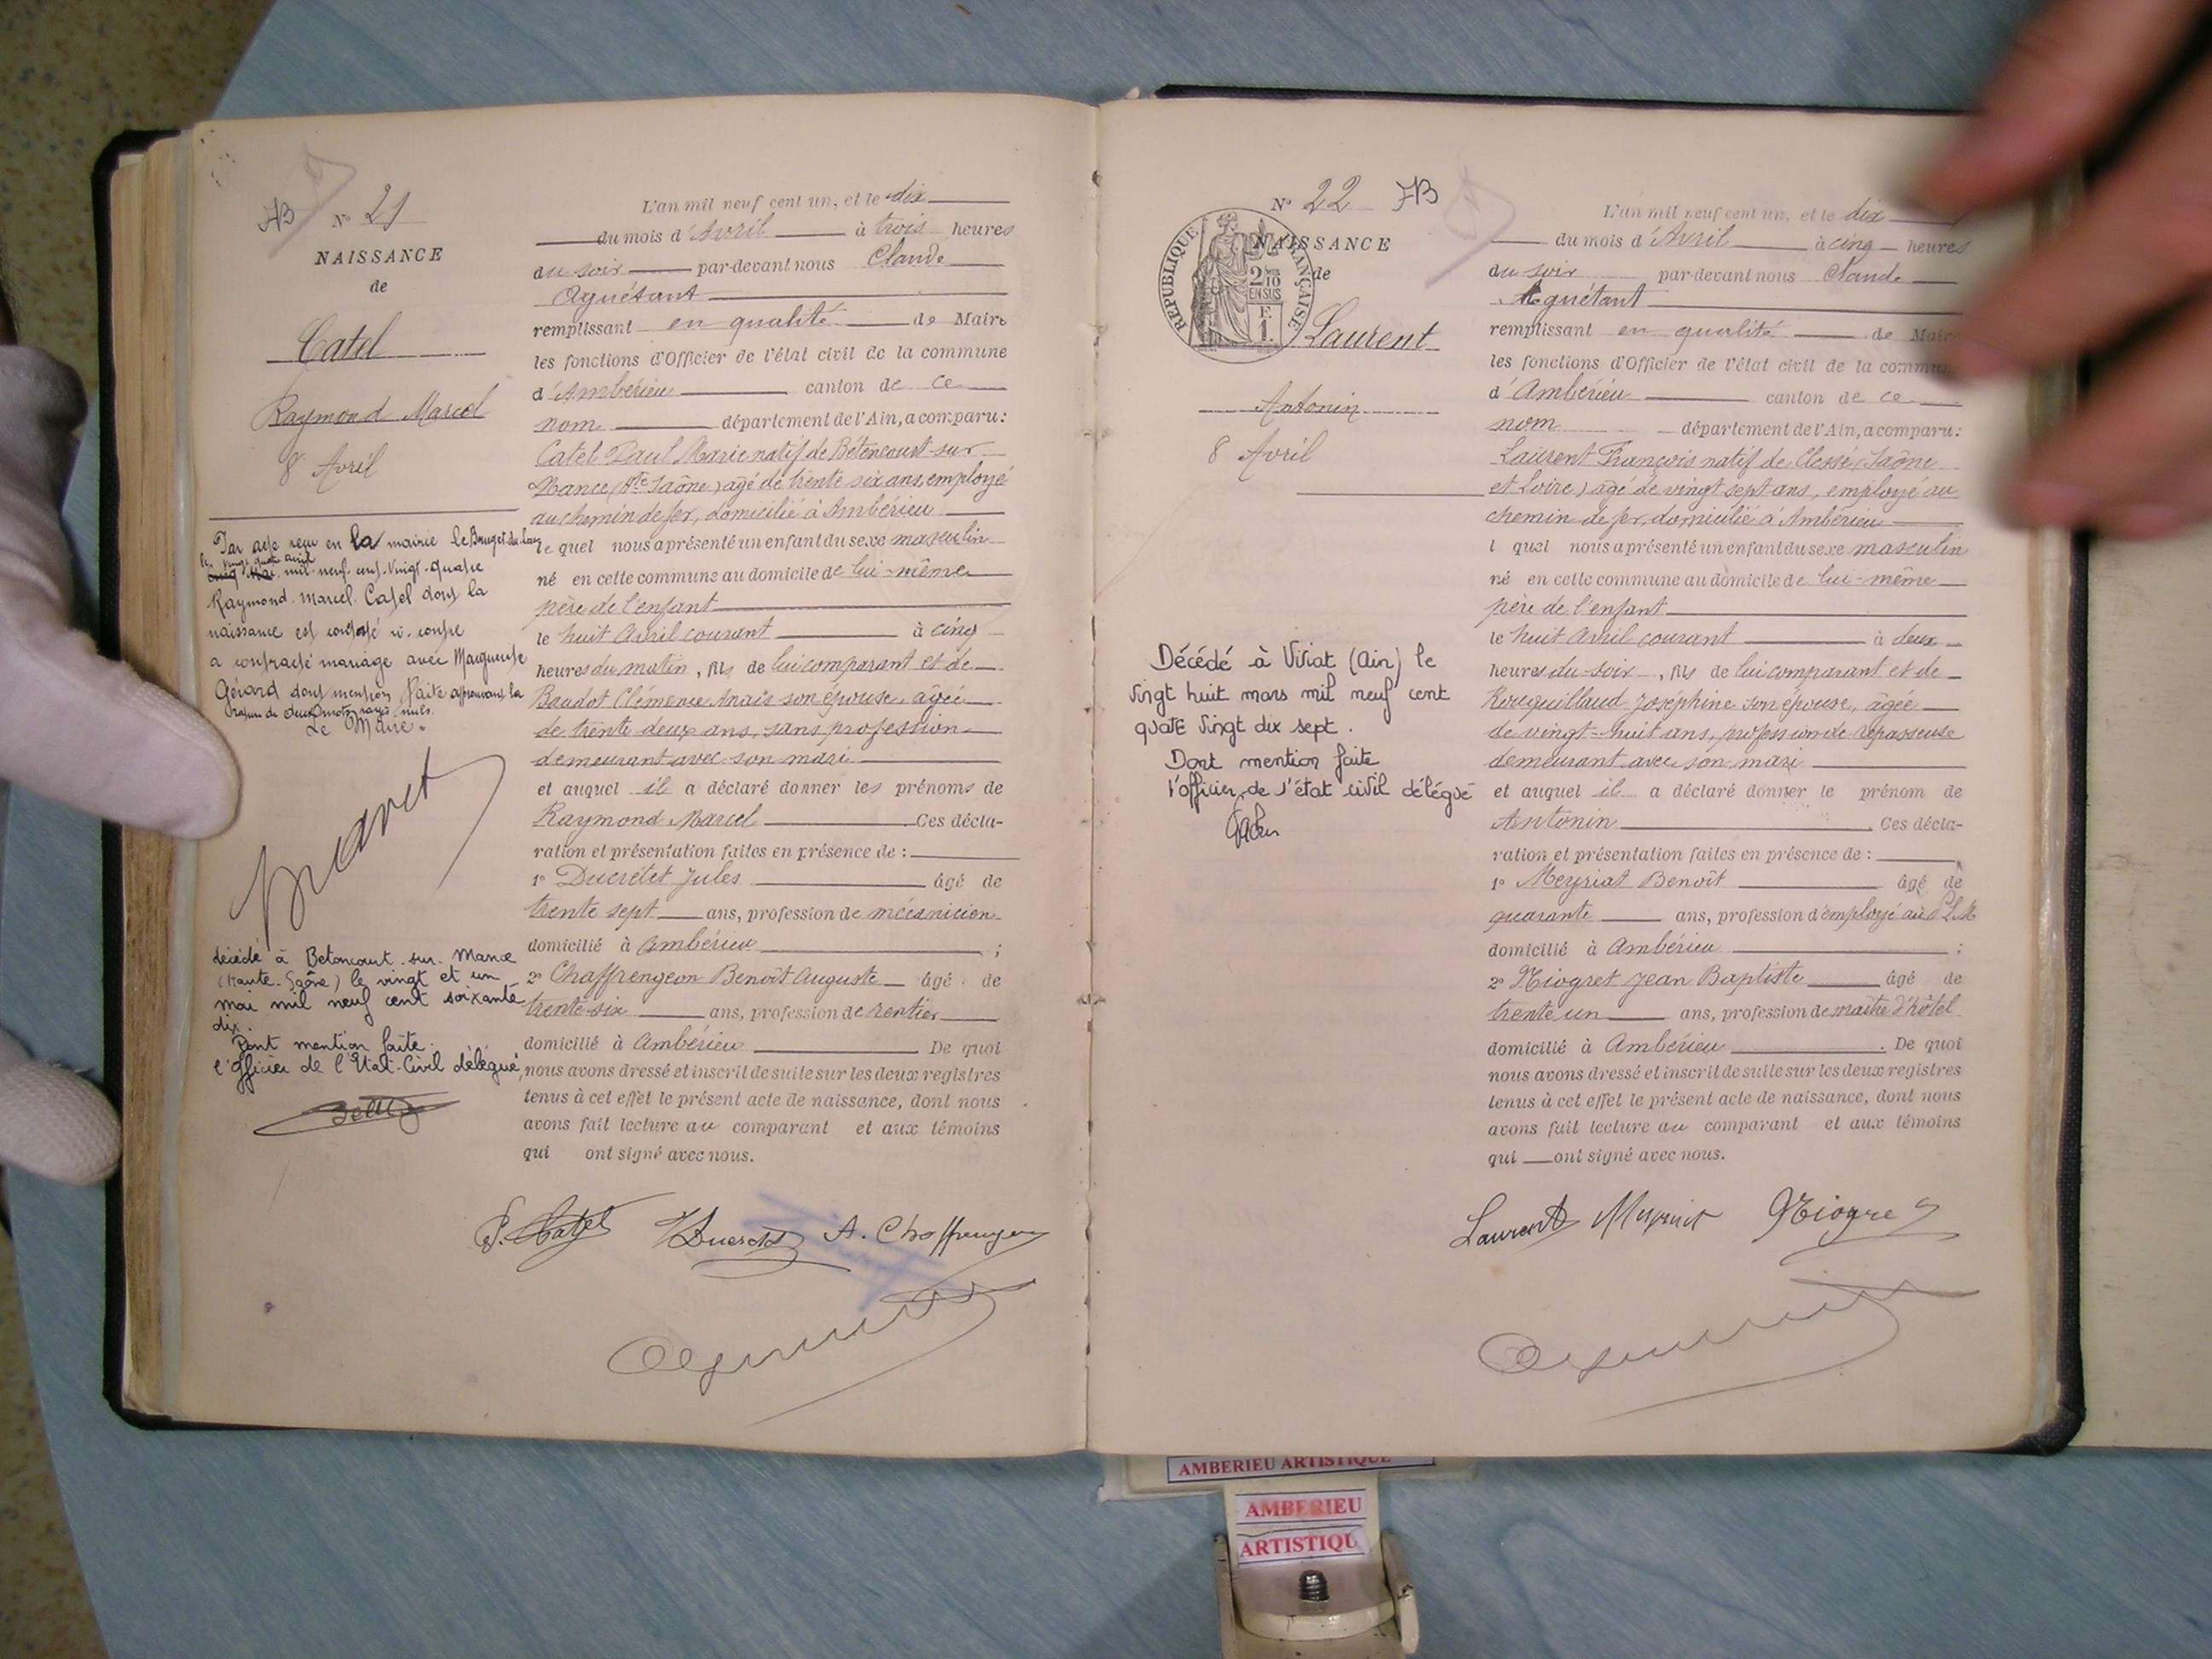 AB N° 21
NAISSANCE
de
Catel
Raymond Marcel
8 Avril
Par acte reçu en la mairie le Bourget-du-Lac
le vingt quatre avril
mil-neuf-cent-vingt-quatre
Raymond-Marcel Catel dont la
naissance est constaté ci-contre
a contracté mariage avec Marguerite
Gérard dont mention faite approuvant la
rature de deux mots rayés nuls.
Le Maire.
décédé à Betoncourt-sur-Mance
(Haute-Saône) le vingt et un
mai mil neuf cent soixante
dix.
Dont mention faite.
l'Officier de l'Etat-Civil délégué,
L'an mil neuf cent un, et le dix
du mois d'Avril à trois heures
du soir par-devant nous Claude
Aguétant
remplissant en qualité de Maire
les fonctions d'Officier de l'état civil de la commune
d'Ambérieu canton de ce
nom département de l'Ain, a comparu:
Catel Paul Marie natif de Bétencourt-sur-
Mance (Hte Saône) agé de trente six ans, employé
au chemin de fer, domicilié à Ambérieu
le quel nous a présenté un enfant du sexe masculin
né en cette commune au domicile de lui-même
père de l'enfant
le huit Avril courant à cinq
heures du matin, fils de lui comparant et de
Baudot Clémence Anaïs son épouse, âgée
de trente deux ans, sans profession
demeurant avec son mari
et auquel il a déclaré donner les prénoms de
Raymond Marcel Ces décla-
ration et présentation faites en présence de :
1° Ducrétet Jules âgé de
trente sept ans, profession de mécanicien
domicilié à Ambérieu ;
2° Chaffrengeon Benoît Auguste âgé de
trente-six ans, profession de rentier
domicilié à Ambérieu De quoi
nous avons dressé et inscrit de suite sur les deux registres
tenus à cet effet le présent acte de naissance, dont nous
avons fait lecture au comparant et aux témoins
qui ont signé avec nous.
P. Catel Ducrétet A. Chaffrengeon
Aguétant
N° 22 AB
RÉPUBLIQUE FRANÇAISE
2/10
EN SUS
F.
1.
NAISSANCE
de
Laurent
Antonin
8 Avril
Décédé à Viriat (Ain) le
vingt huit mars mil neuf cent
quatre vingt dix sept.
Dont mention faite
l'officier de l'état civil délégué
L'an mil neuf cent un, et le dix
du mois d'Avril à cinq heures
du soir par-devant nous Claude
Aguétant
remplissant en qualité de Mair
les fonctions d'Officier de l'état civil de la commun
d'Ambérieu canton de ce
nom département de l'Ain, a comparu:
Laurent François natif de Clessé (Saône
et Loire) agé de vingt sept ans, employé au
chemin de fer, domicilié à Ambérieu
l quel nous a présenté un enfant du sexe masculin
né en cette commune au domicile de lui-même
père de l'enfant
le huit Avril courant à deux
heures du soir, fils de lui comparant et de
Rouquillaud Joséphine son épouse, âgée
de vingt-huit ans, profession de repasseuse
demeurant avec son mari
et auquel il a déclaré donner le prénom de
Antonin Ces décla-
ration et présentation faites en présence de :
1° Meyriat Benoît âgé de
quarante ans, profession d'employé au P.L.M
domicilié à Ambérieu ;
2° Niogret Jean Baptiste âgé de
trente un ans, profession de maître d'hôtel
domicilié à Ambérieu. De quoi
nous avons dressé et inscrit de suite sur les deux registres
tenus à cet effet le présent acte de naissance, dont nous
avons fait lecture au comparant et aux témoins
qui ont signé avec nous.
Laurent Meyriat Niogret
Aguétant
AMBERIEU ARTISTIQUE
AMBERIEU
ARTISTIQU